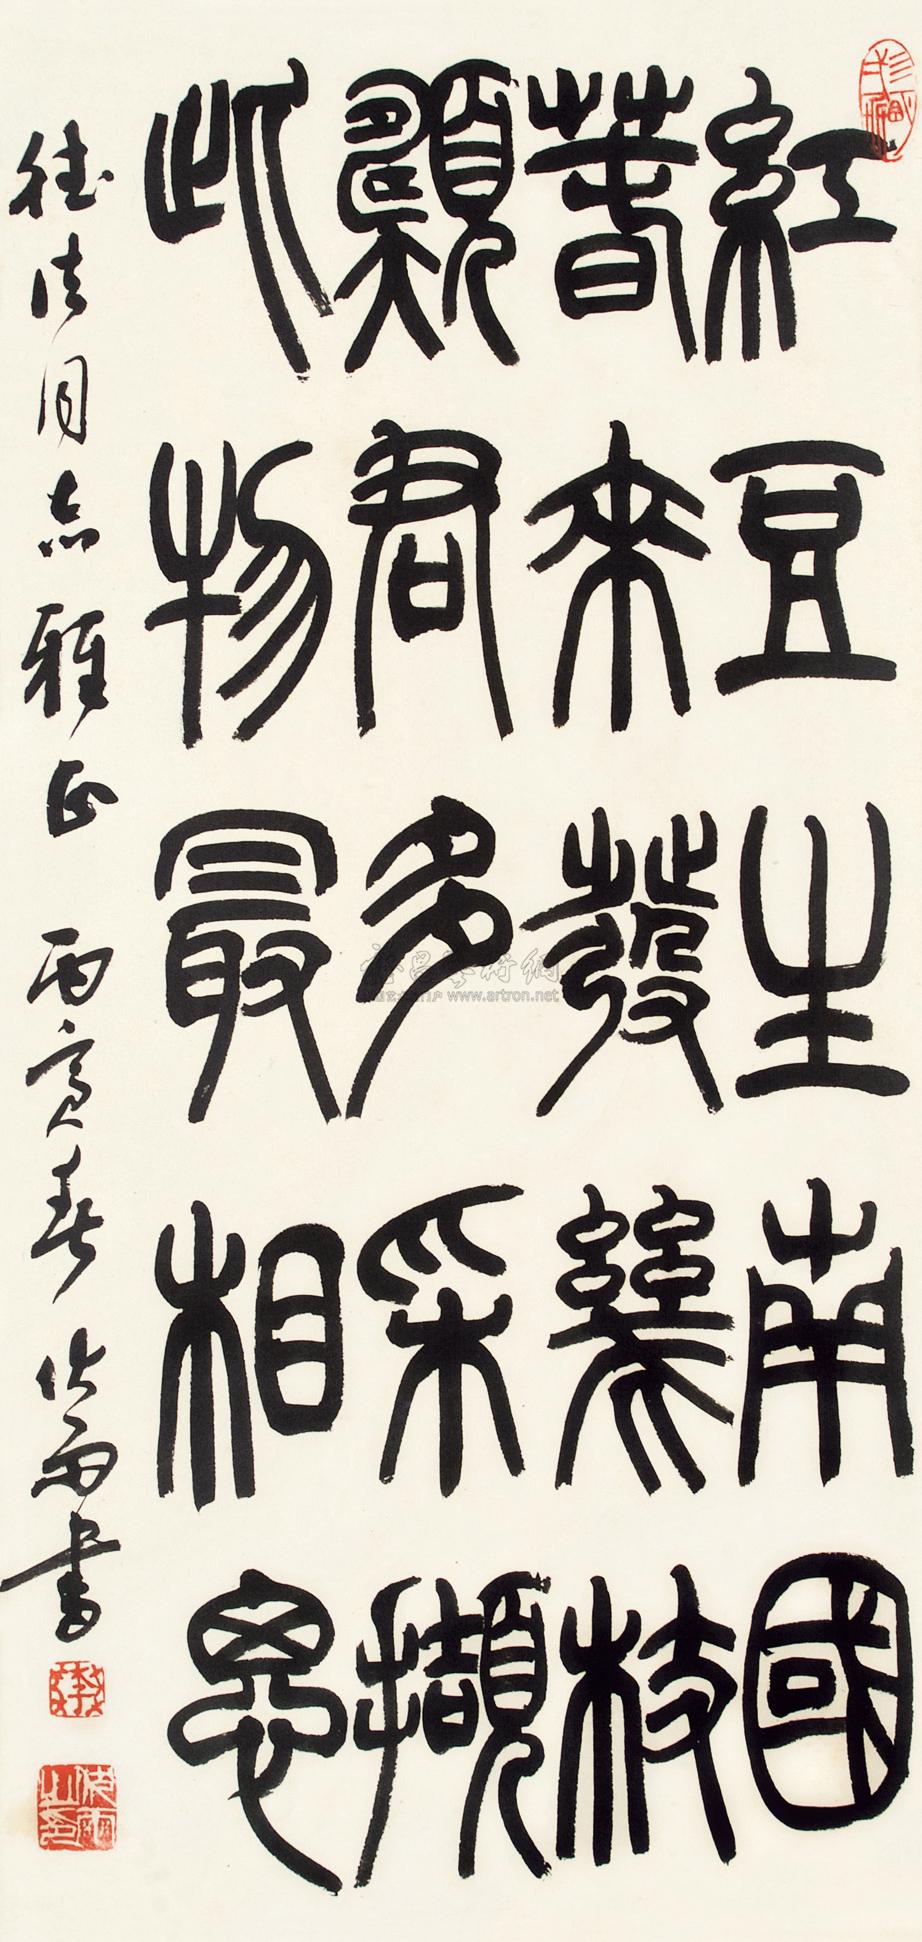 紅豆生南國
春來發幾枝
願君多采擷
此物最相思
德法同志雅正 丙寅春 作雨書
www.artron.net